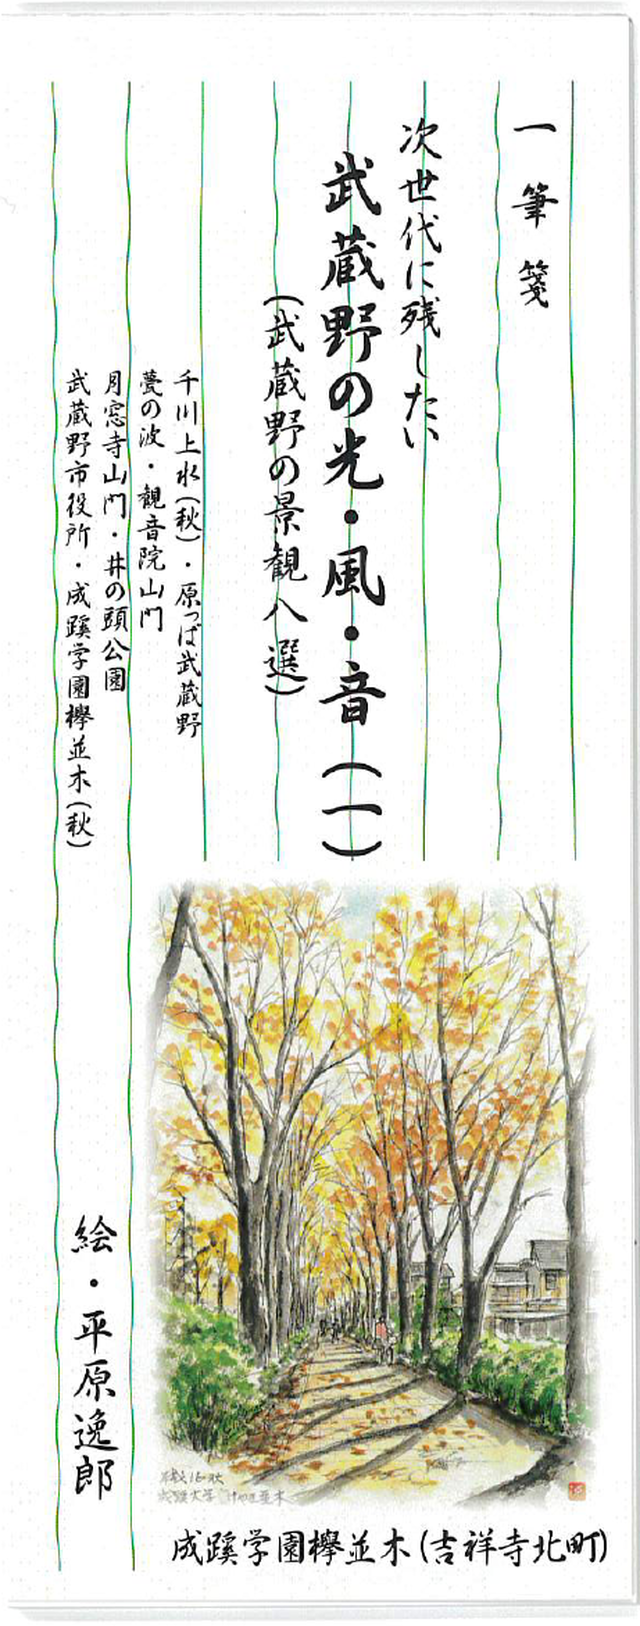 一筆箋
次世代に残したい
武蔵野の光・風・音(一)
(武蔵野の景観八選)
千川上水(秋)・原っぱ武蔵野
甍の波・観音院山門
月窓寺山門・井の頭公園
武蔵野市役所・成蹊学園欅並木(秋)
絵・平原逸郎
成蹊大学 けやき並木
成蹊学園欅並木(吉祥寺北町)